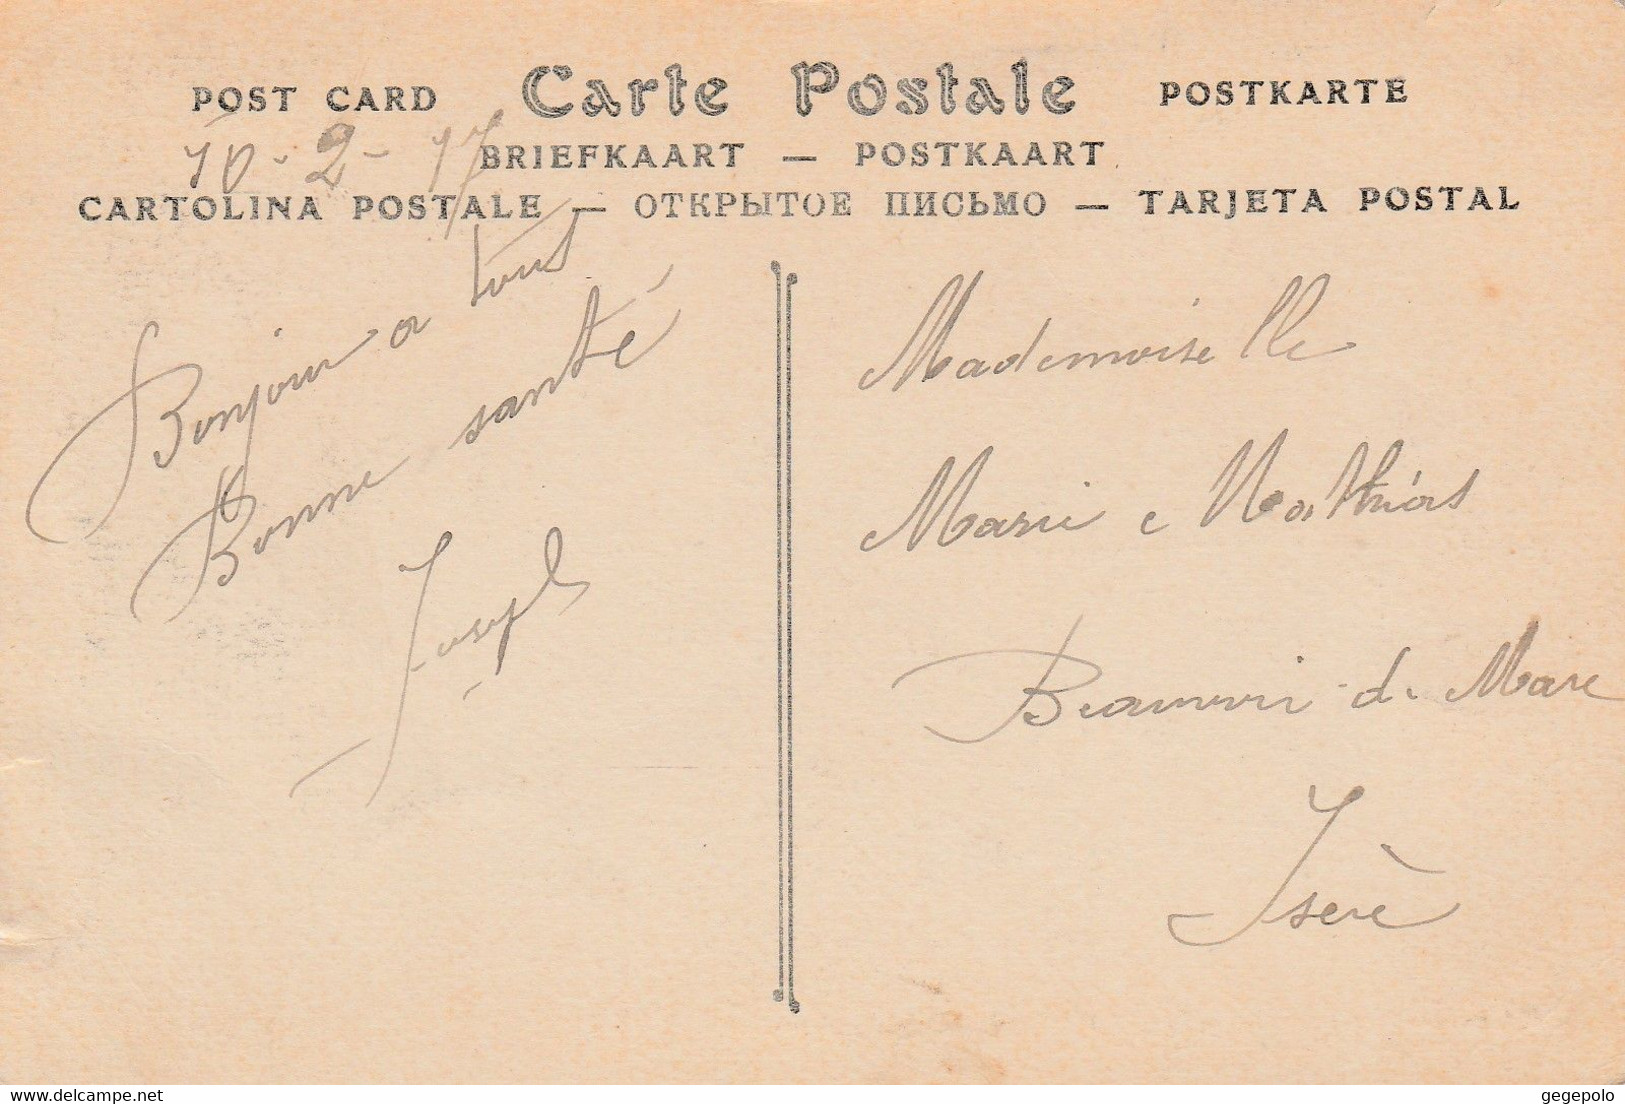 POST CARD Carte Postale POSTKARTE
10-2-17
BRIEFKAART — POSTKAART
CARTOLINA POSTALE — ОТКРЫТОЕ ПИСЬМО — TARJETA POSTAL
Bonjour a tous
Bonne santé
Joseph
Mademoiselle
Marie Mathias
Beauvoir de Marc
Isère
delcampe.net
gegepolo